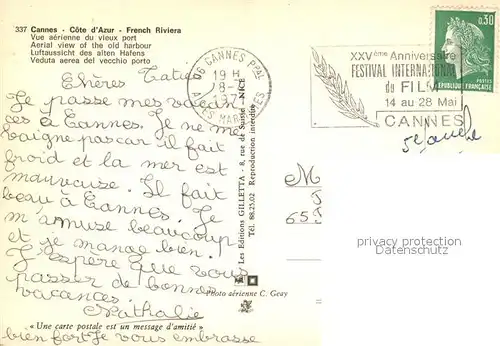 337 Cannes - Côte d'Azur - French Riviera
Vue aérienne du vieux port
Aerial view of the old harbour
Luftaussicht des alten Hafens
Veduta aerea del vecchio porto
Chères Taties
Je passe mes vacan
ces à Cannes. Je ne me
baigne pas car il fait
froid et la mer est
mauvaise. Il fait
beau à Cannes. Je
m'amuse beaucoup
et je mange bien.
J'espère que vous
passer de bonnes
vacances.
Nathalie
« Une carte postale est un message d'amitié »
bien fort Je vous embrasse
Les Editions GILLETTA - 8, rue de Suisse - NICE
Tél. 88.25.02 Reproduction interdite
Photo aérienne C. Geay
06 CANNES Pal
19 H
ALPES MARITIMES
XXVème Anniversaire
FESTIVAL INTERNATIONAL
du FILM
14 au 28 Mai
CANNES
0,30
REPUBLIQUE FRANÇAISE
M
65
privacy protection
Datenschutz